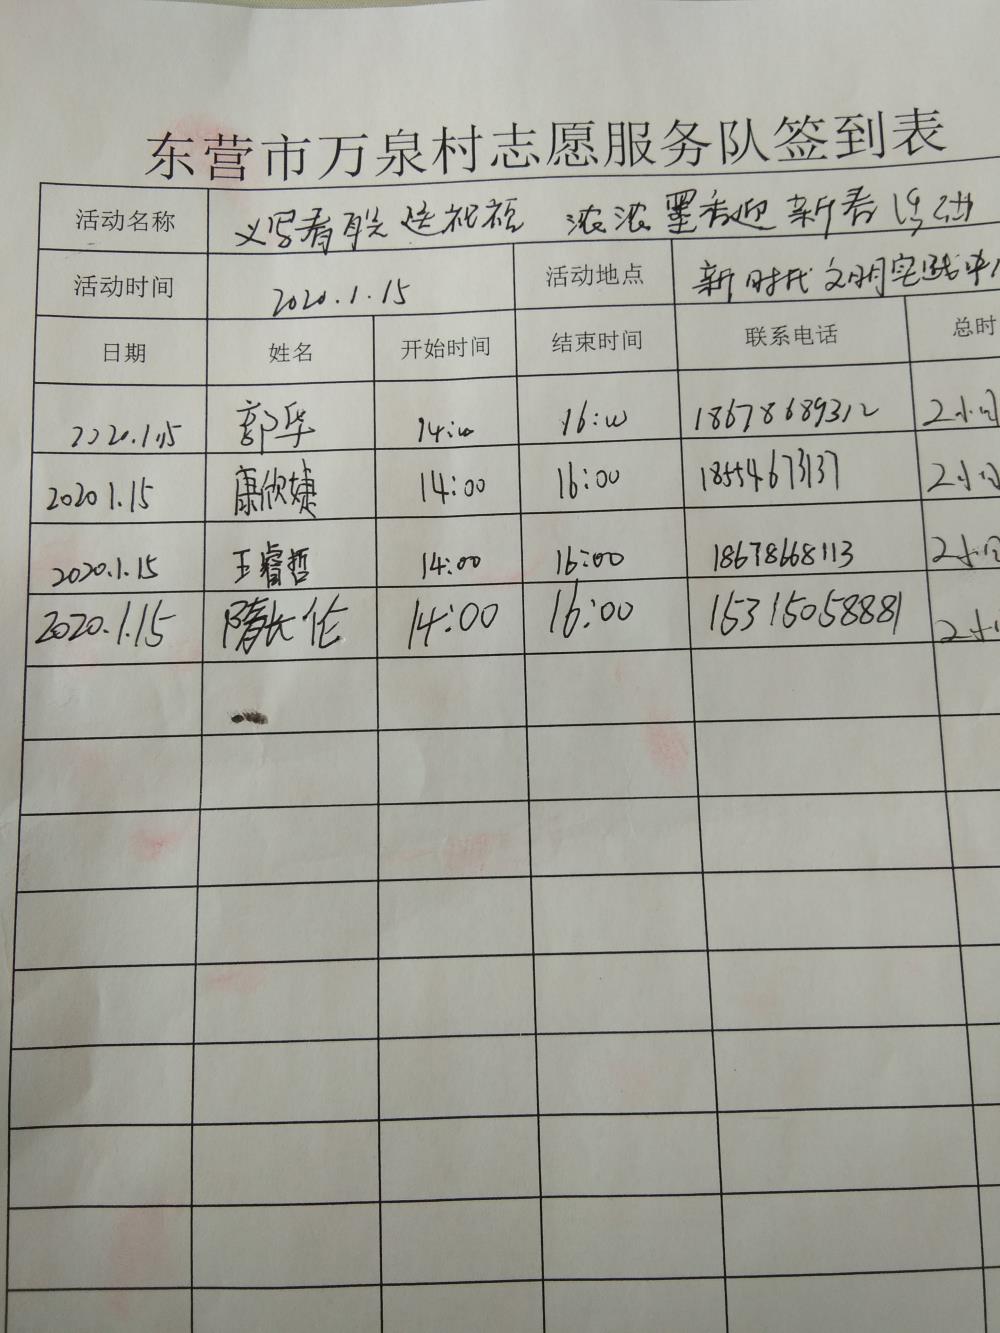 东营市万泉村志愿服务队签到表
活动名称 义写春联送祝福 浓浓墨香迎新春活动
活动时间 2020.1.15 活动地点 新时代文明实践中
日期 姓名 开始时间 结束时间 联系电话 总时
2020.1.15 郭华 14:00 16:00 18678689312 2小时
2020 1.15 康欣婕 14:00 16:00 18554673137 2小时
2020.1.15 王睿哲 14:00 16:00 18678668113 2小时
2020.1.15 隋长伦 14:00 16:00 15315058881 2小